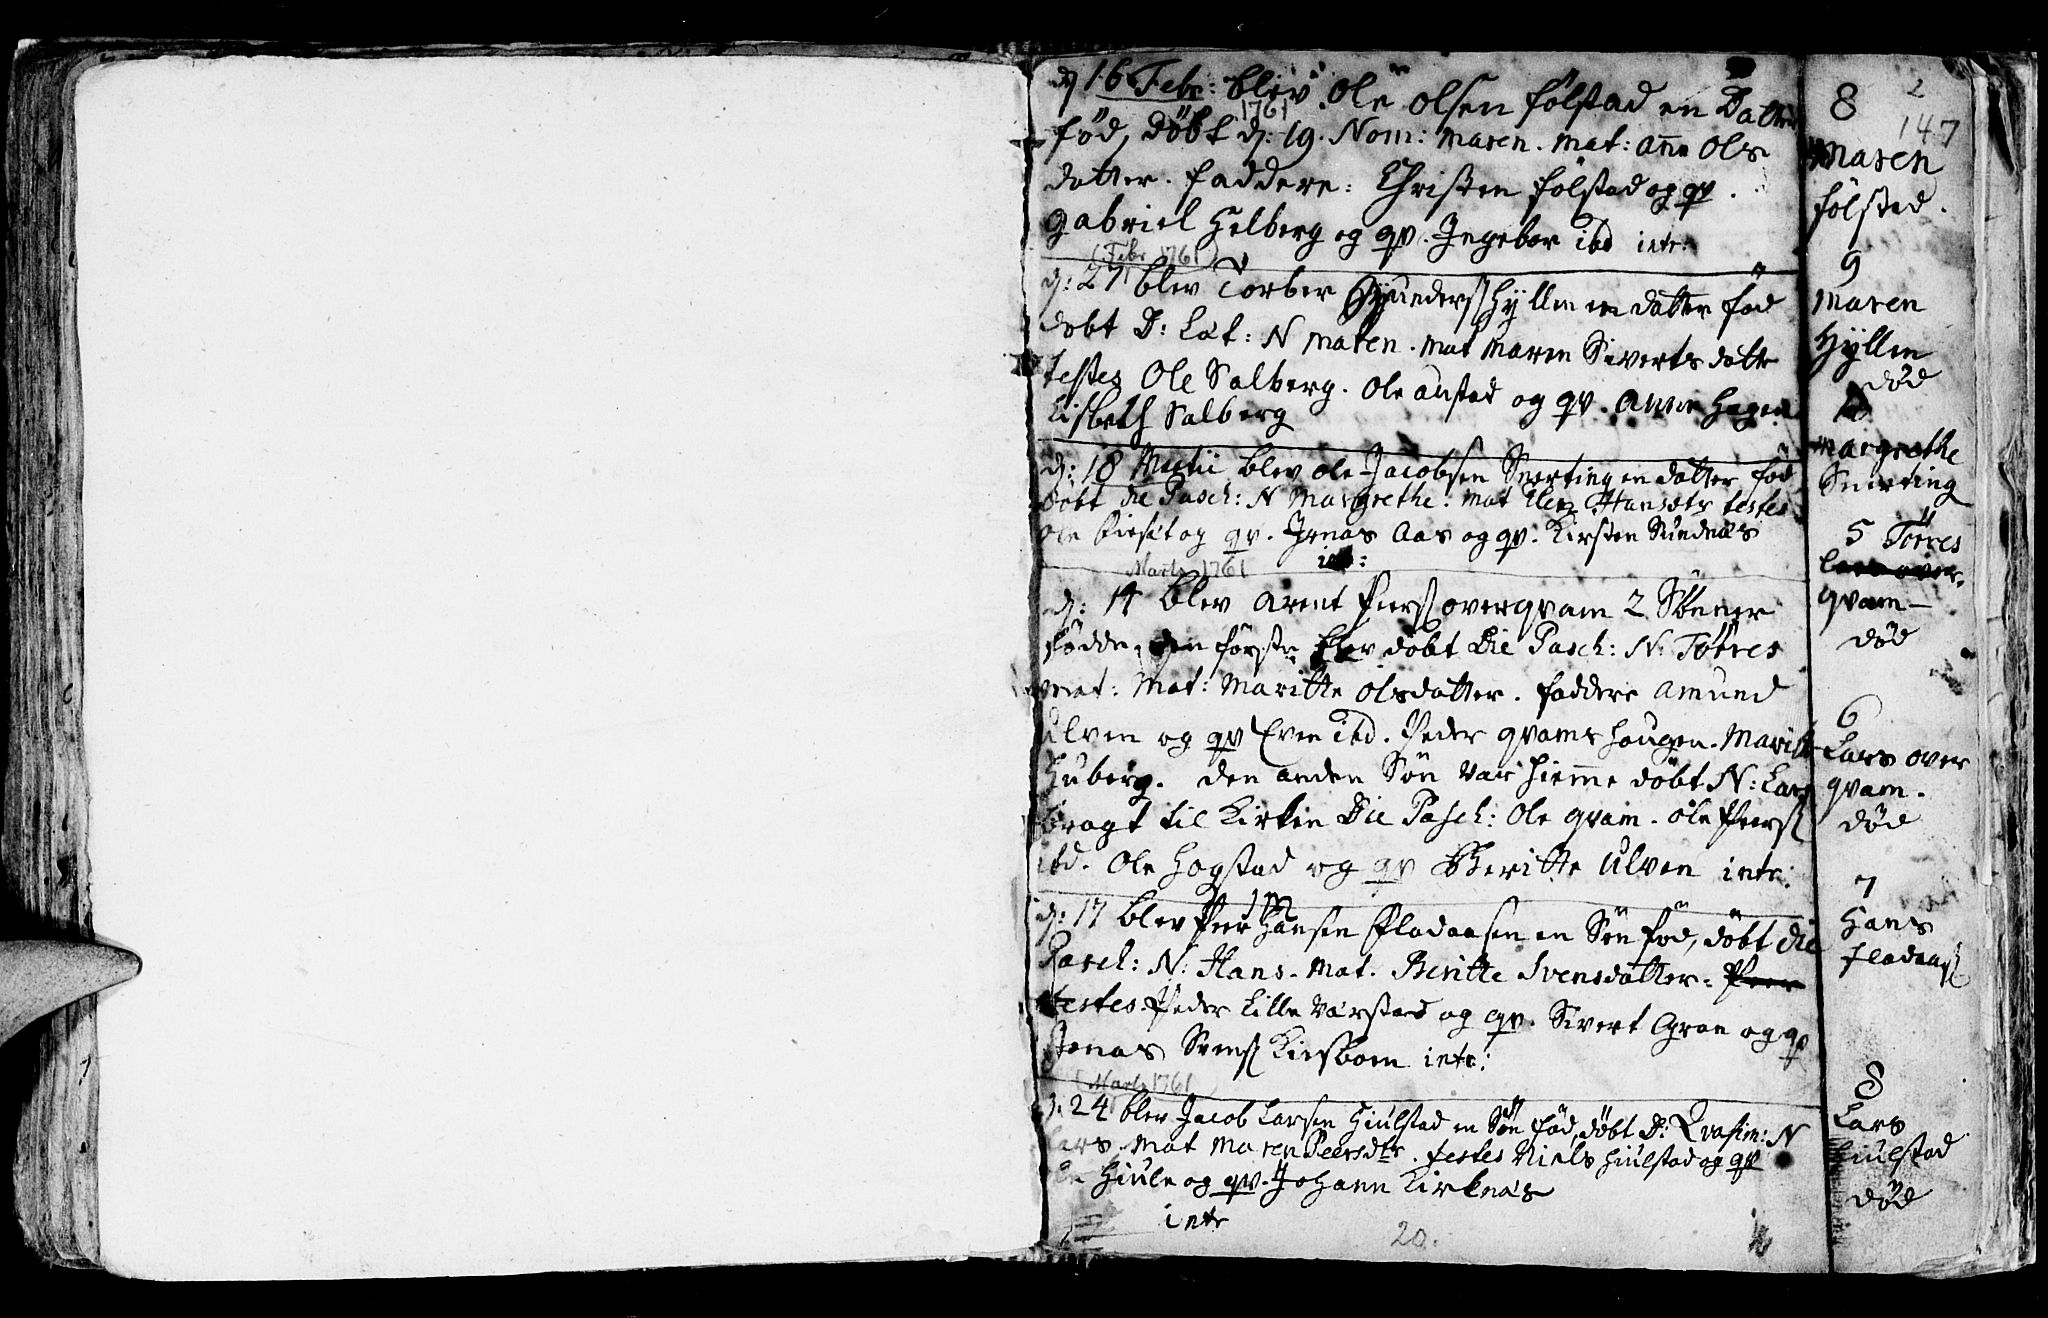 d 16 Febr: blev Ole Olsen følstad en Datter
1761
fød, döbt d: 19. Nom: Maren. Mat: Anne Ols
datter. Faddere: Christen følstad og qv.
Gabriel Helberg og qv. Ingebor ibd intr:
(Febr 1761)
d: 27 blev Torber Hyllen en datter fød
döbt D: Læt: N Maren. Mat Maren Siverts datter
testes Ole Salberg. Ole Austad og qv. Anne Hagen
Lisbeth Salberg
d: 18 Martii blev Ole Jacobsen Snerting en datter fød
Döbt die Pasch: N Margrethe. Mat Elen Hansdtr testes
og qv. Jonas Aas og qv. Kirsten Sundnæs
intr:
Marts 1761
d: 14 blev Arent Piers overqvam 2 Sönner
födde, den förste blev döbt Die Pasch: N: Törres
Mat: Maritte Olsdatter. Faddere Amund
Ulven og qv Even ibd. Peder qvams haugen. Maritte
Huberg. den anden Sön var hiemme döbt N: Lars
bragt til Kirken Die Pasch: Ole qvam. Ole Piers
ibd. Ole Hogstad og qv Beritte Ulven intr:
d: 17 blev Peer Hansen Fladaasen en Sön fød, döbt die
Pasch: N: Hans. Mat. Beritte Svensdatter. Peer
testes Peder Lille Værstad og qv. Sivert Gran og qv
Jonas Svens Kirsboen intr:
(Marts 1761)
d: 24 blev Jacob Larsen Hiulstad en Sön fød, döbt D: Qvasim: N
Lars. Mat Maren Peersdtr. testes Niels Hiulstad og qv
Hiule og qv. Johann Kirknæs
intr
20.
2
8
147
Maren
følstad.
9
Maren
Hÿllen
död
Margrethe
Snerting
5 Törres
Lars over-
qvam-
död
6
Lars over
qvam.
död
7
Hans
fladaas
8
Lars
Hiulstad
död